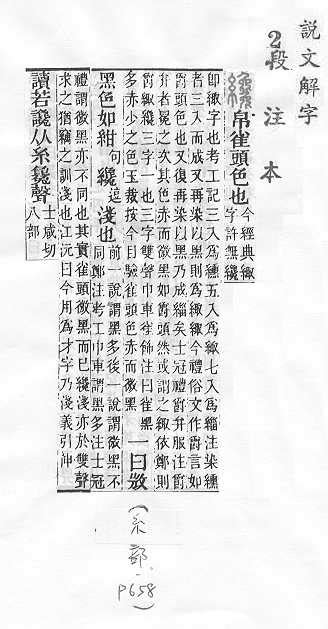 說文解字
段注本
2
纔 帛雀頭色也
今經典緅
字許無纔
卽緅字也考工記三入爲纁五入爲緅七入爲緇注染纁
者三入而成又再染以黑則爲緅緅今禮俗文作爵言如
爵頭色也又復再染以黑乃成緇矣士冠禮爵弁服注爵
弁者冕之次其色赤而微黑如爵頭然或謂之緅依鄭則
爵緅纔三字一也三字雙聲巾車雀飾注曰雀黑
多赤少之色玉裁按今目驗雀頭色赤而微黑
一曰𢼸
黑色如紺 句 纔 逗 淺也
前一說謂黑多後一說謂微黑不
同鄭注考工巾車謂黑多注士冠
禮謂微黑亦不同也其實雀頭微黑而已纔淺亦於雙聲
求之猶竊之訓淺也江沅曰今用爲才字乃淺義引伸
讀若讒从糸毚聲
士咸切
八部
(糸部. P658)